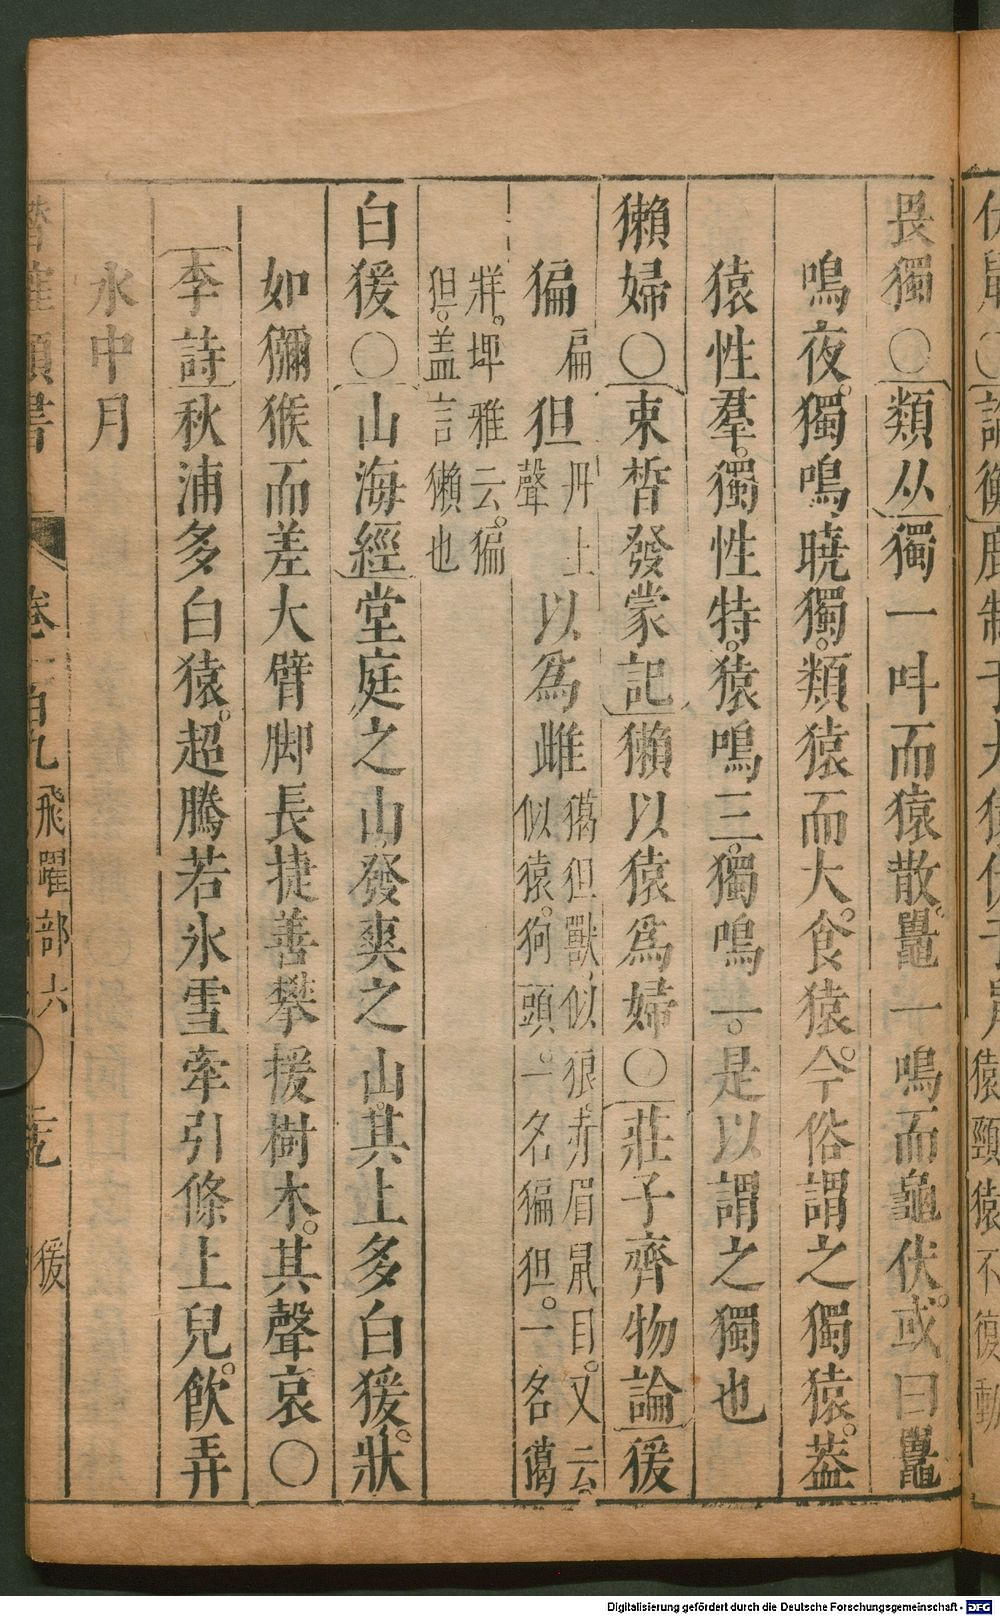 畏獨○類从獨一呌而猿散。鼍一鳴而龜伏。或曰鼍
鳴夜。獨鳴曉獨。類猿而大。食猿。今俗謂之獨猿。葢
猿性羣。獨性特。猿鳴三。獨鳴一。是以謂之獨也
獺婦○束晳發蒙記獺以猿爲婦○莊子齊物論猨
猵扁但丹上聲以爲雌獦狚獸似猿。狗頭。一名猵狚。一名獦
牂。埤雅云。猵狚。盖言獺也
白猨○山海經堂庭之山發爽之山。其上多白猨。狀
如獼猴而差大臂脚長捷善攀援樹木。其聲哀○
李詩秋浦多白猿。超騰若氷雪牽引條上兒。飮弄
水中月
卷一百九 飛躍部六 猨
猿頸猿不復動
Digitalisierung gefördert durch die Deutsche Forschungsgemeinschaft - DFG